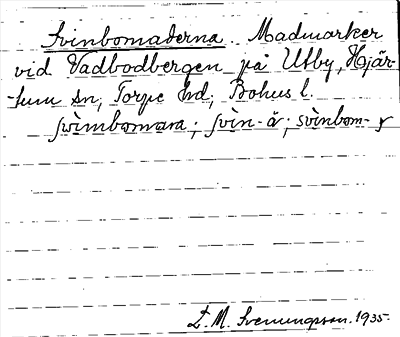 Svinbomaderna. Madmarker
vid Vadbodbergen på Utby, Hjär-
tum sn, Torpe hd, Bohus l.
svinbomara; svin-å; svinbom-
L. M. Svenungsson. 1935.